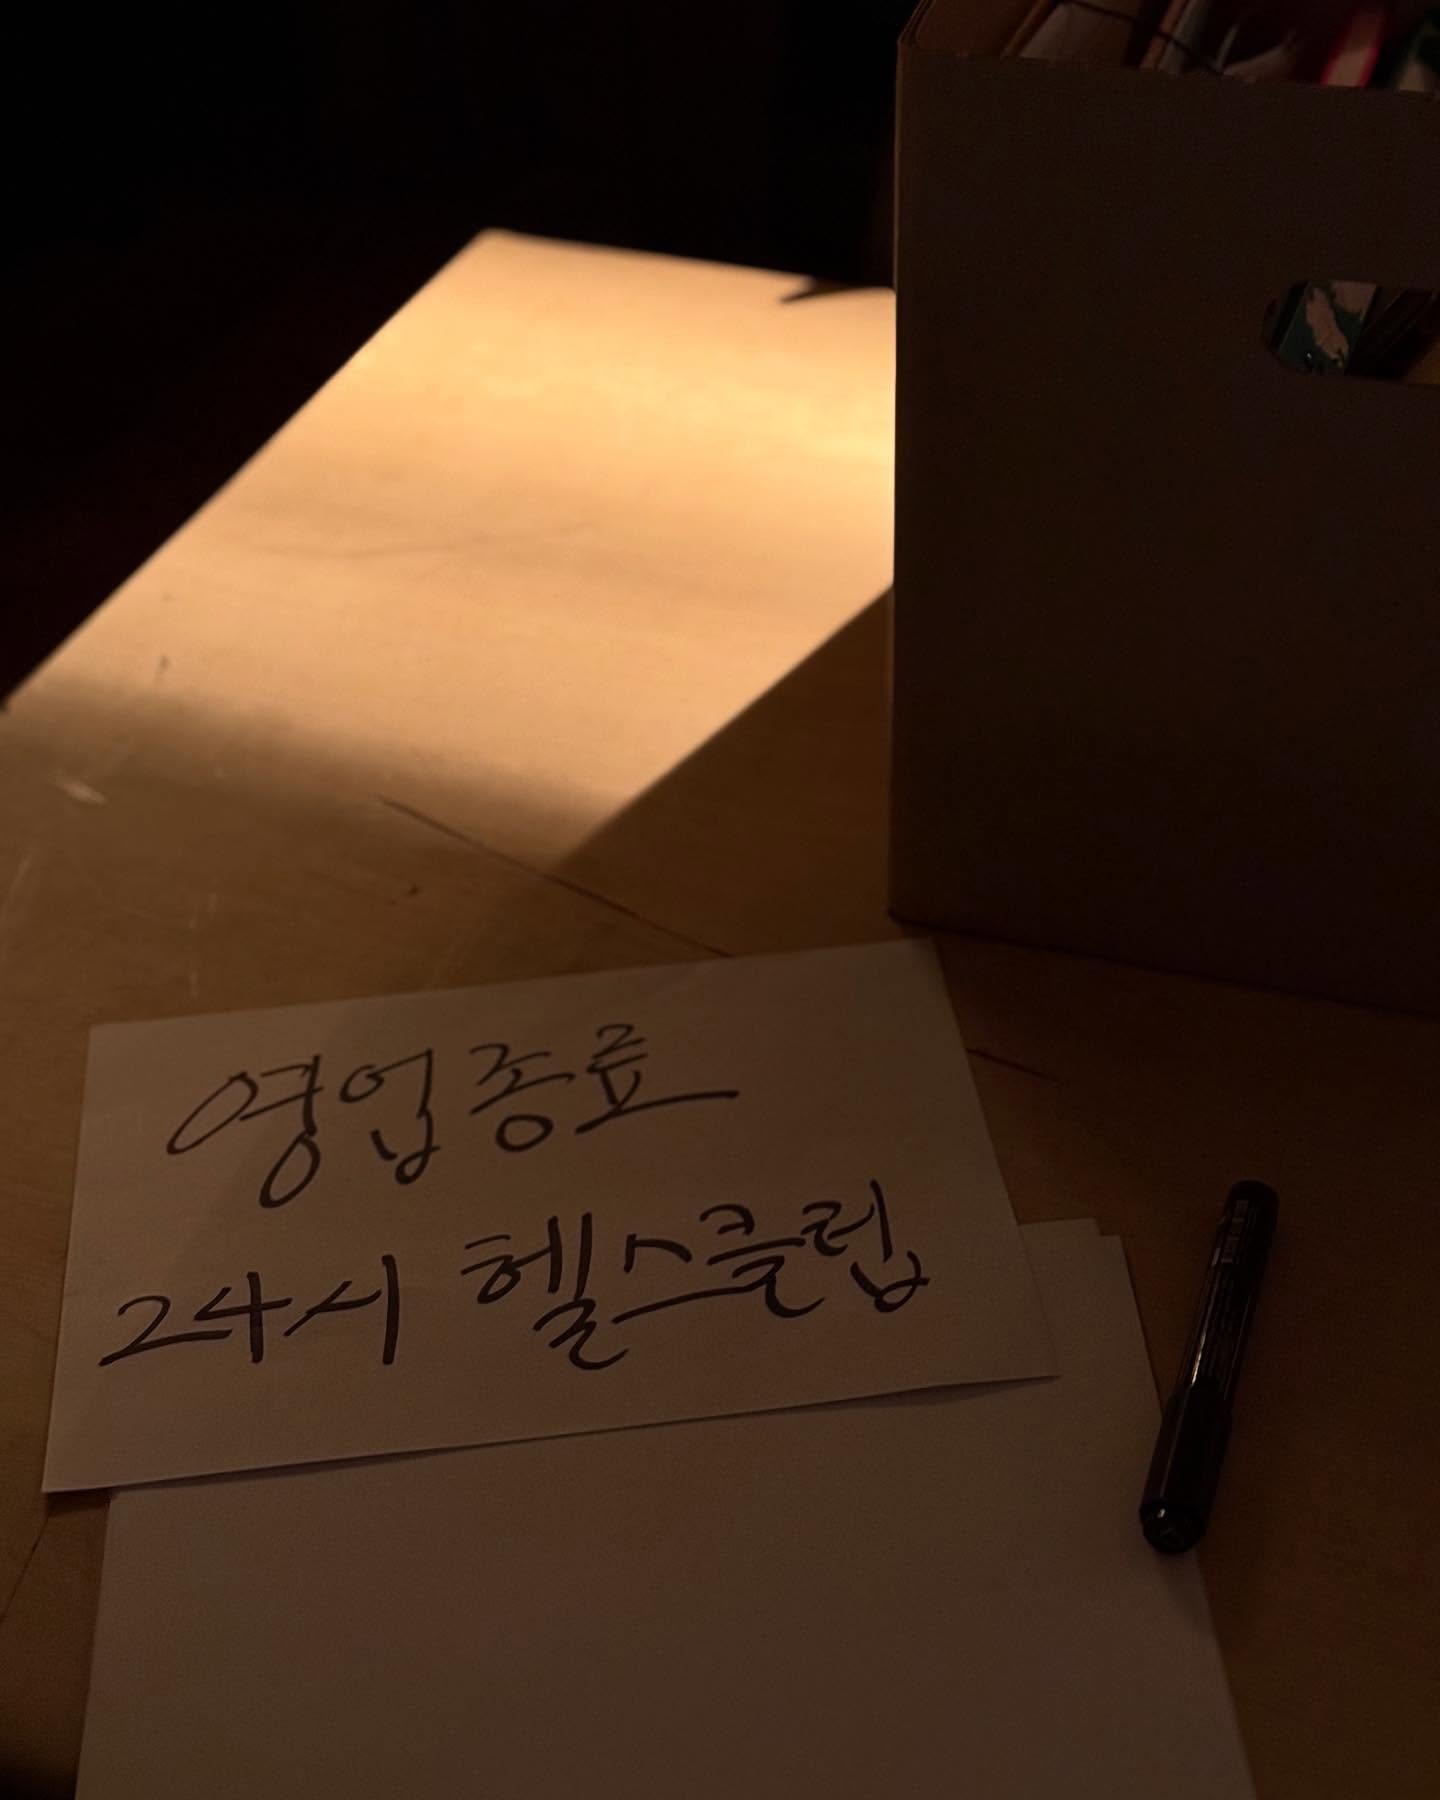 영업종료
24시 헬스클럽